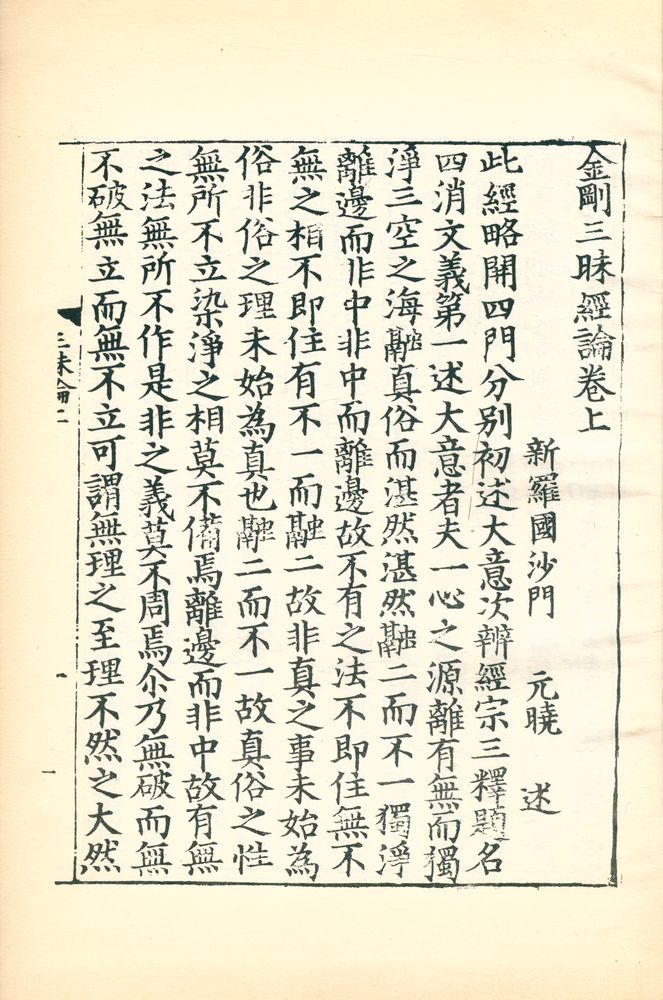 金剛三昧經論卷上
新羅國沙門 元曉 述
此經略開四門分别初述大意次辨經宗三釋題名
四消文義第一述大意者夫一心之源離有無而獨
淨三空之海融真俗而湛然湛然融二而不一獨淨
離邊而非中非中而離邊故不有之法不即住無不
無之相不即住有不一而融二故非真之事未始為
俗非俗之理未始為真也融二而不一故真俗之性
無所不立染淨之相莫不備焉離邊而非中故有無
之法無所不作是非之義莫不周焉尒乃無破而無
不破無立而無不立可謂無理之至理不然之大然
三昧論二
一